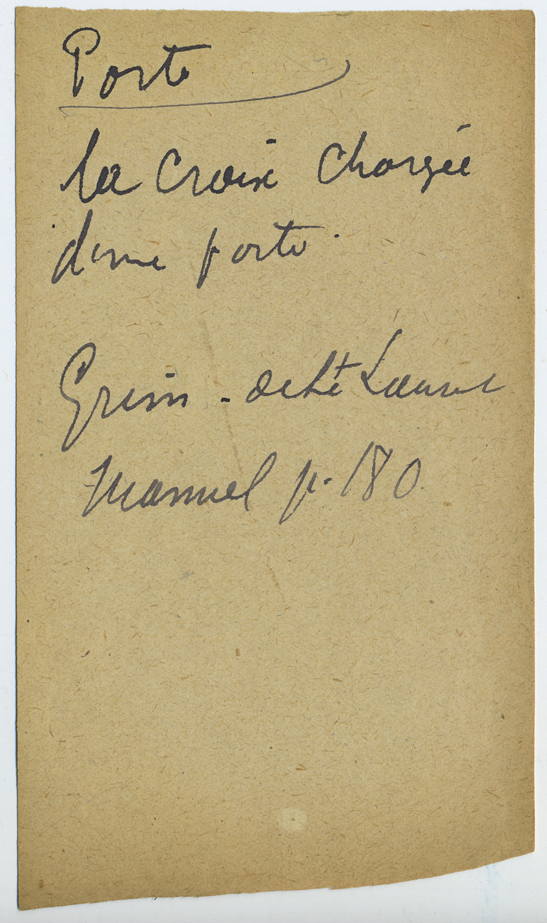 Porte
la croix chargée
d'une porte.
Grim - de St Laurent
Manuel p. 180